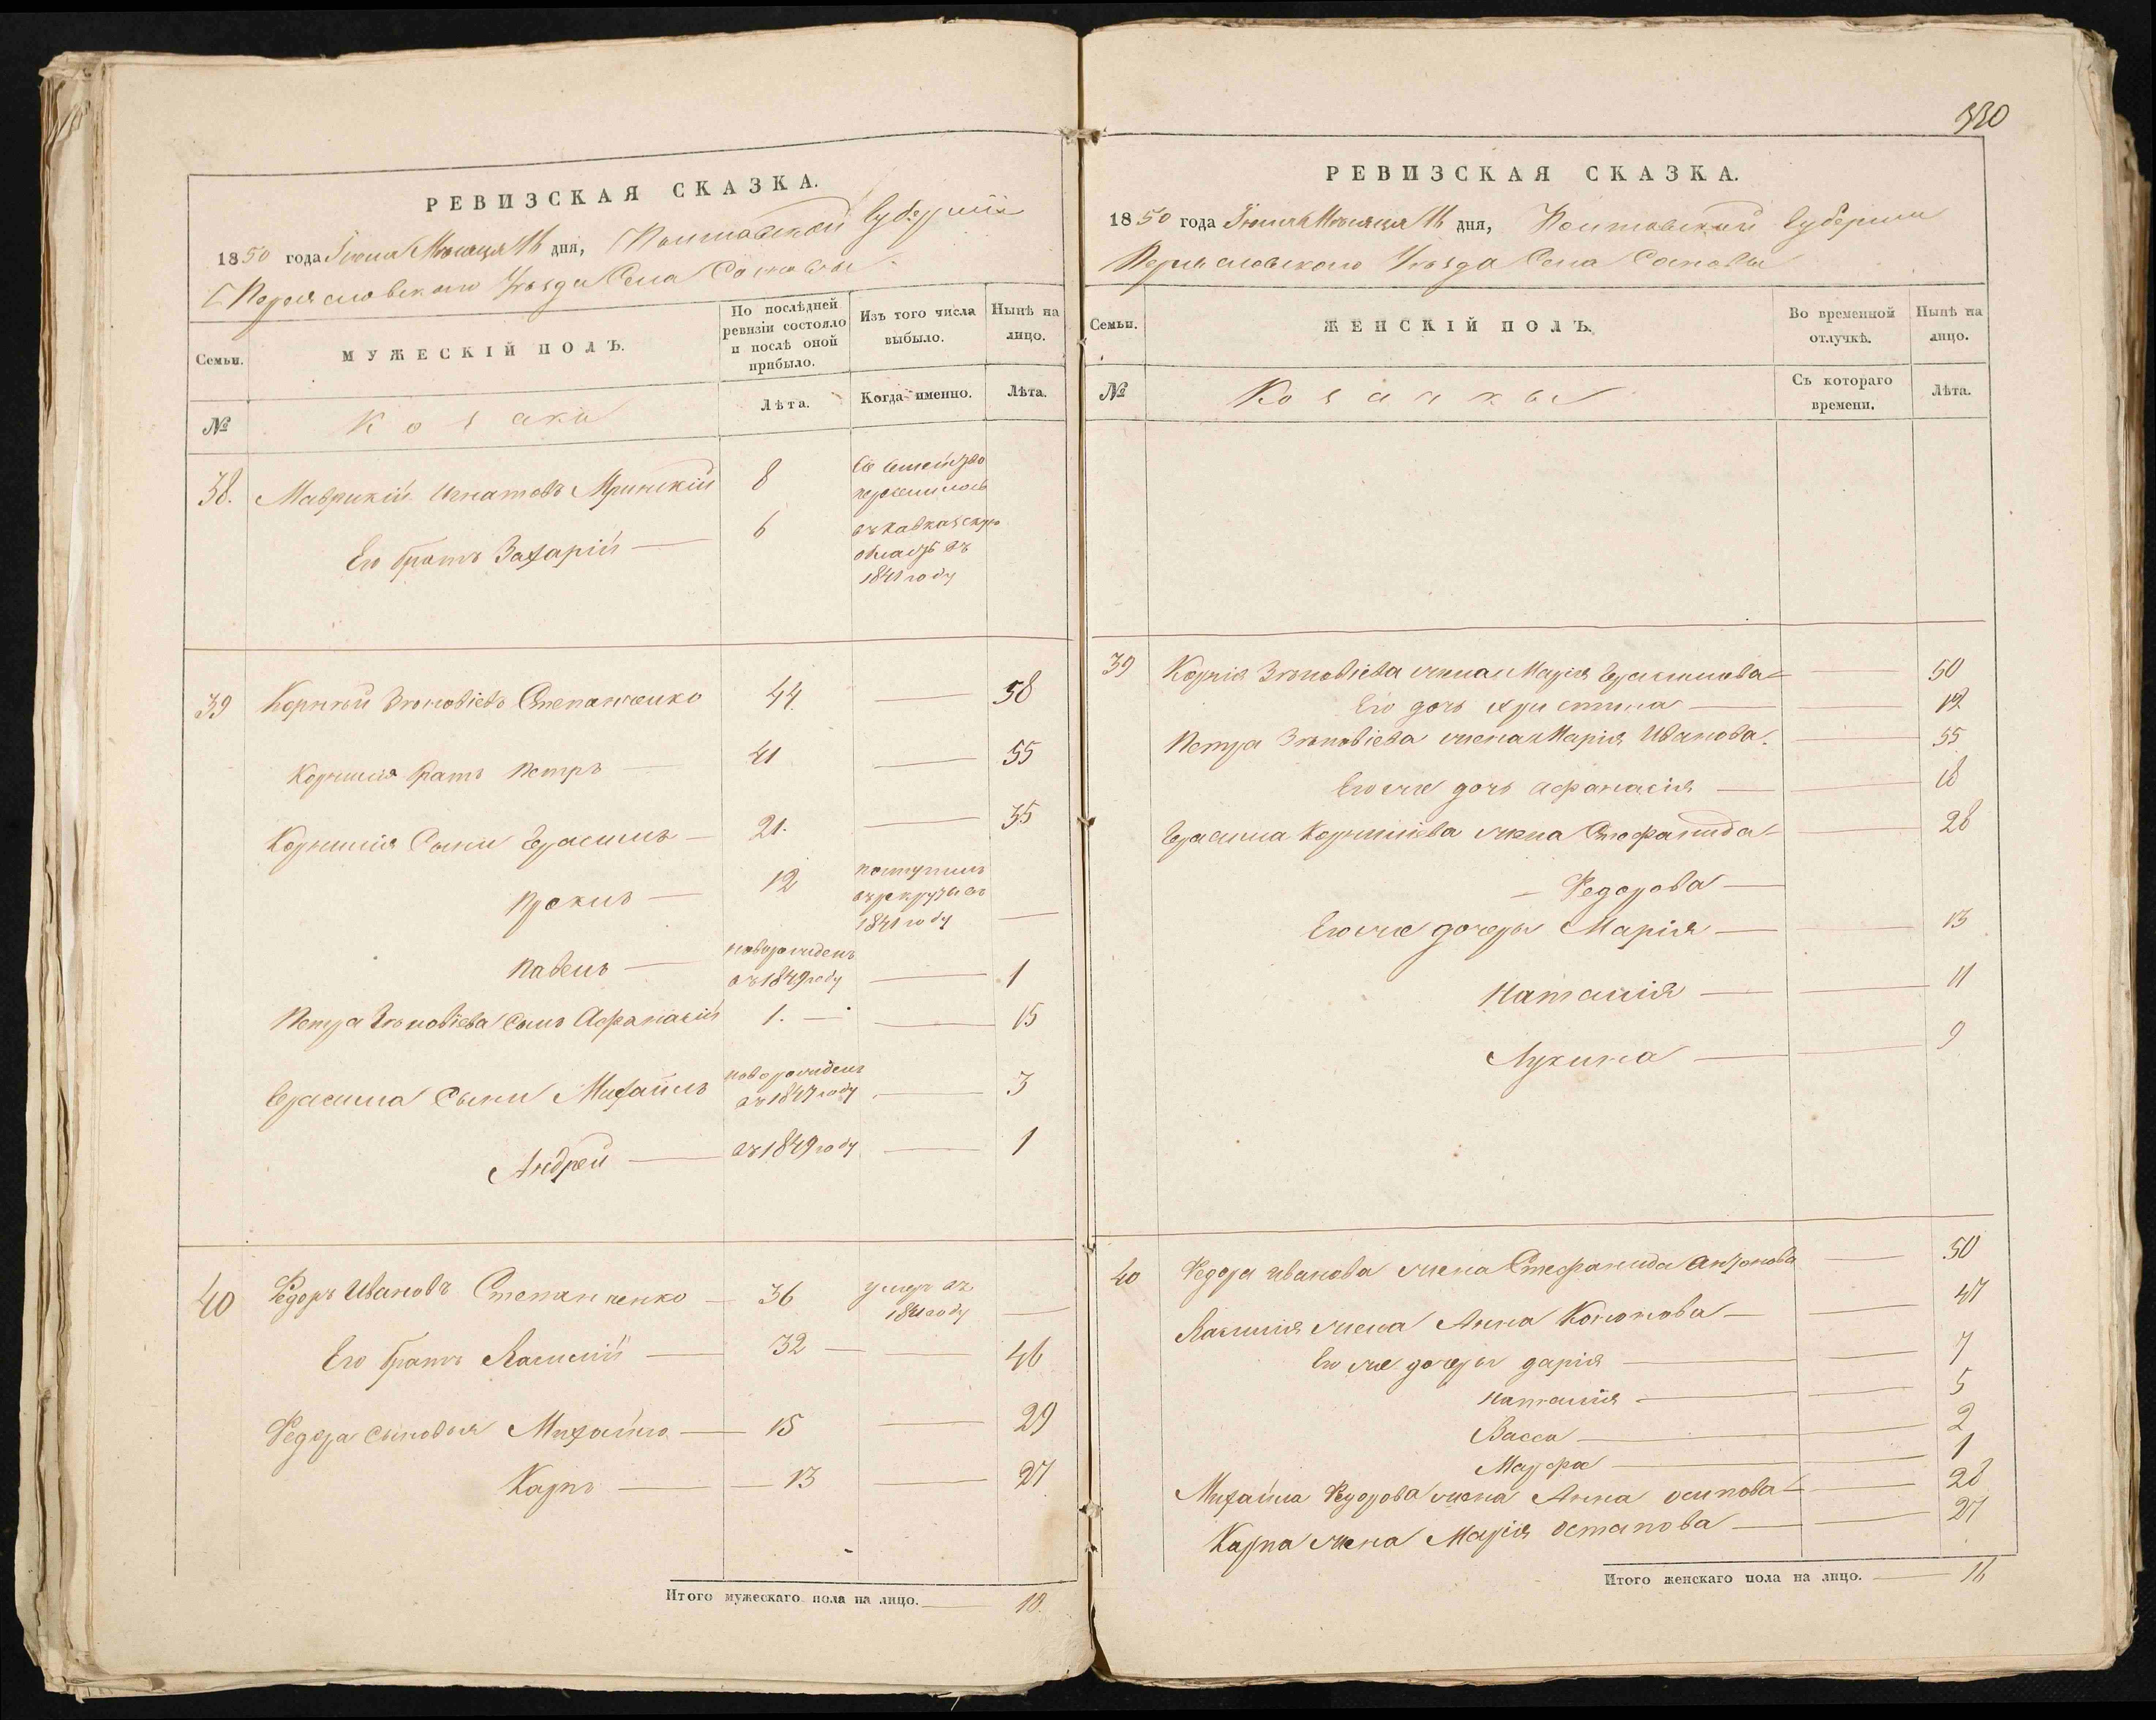 РЕВИЗСКАЯ СКАЗКА.
1850 года Іюня Месяца 16 дня, Полтавской Губерніи
Переясловского Уезда Села Сосновы
Семьи.
МУЖЕСКІЙ ПОЛЪ.
По послѣдней ревизіи состояло и послѣ оной прибыло.
Изъ того числа выбыло.
Нынѣ на лицо.
№
Козаки
Лѣта.
Когда именно.
Лѣта.
38. Маврикій Игнатовъ Мринскій 8
Его братъ Захарій — 6
Сіе семейство
переселилось
въ Кавказскую
область въ
1841 году
39 Корнилий Зѣновіевъ Степанченко 44 — 58
Корнилія братъ Петръ — 41 — 55
Корнилія Сыни Герасимъ — 21. — 35
Прокипъ — 12 поступилъ
въ рекруты въ
1841 году —
Павелъ — новорожденъ
въ 1849 году — 1
Петра Зѣновіева Сынъ Афанасій 1. — — 15
Герасима Сыни Михаилъ новорожденъ
въ 1847 году — 3
Андрей — въ 1849 году — 1
40 Федоръ Ивановъ Степанченко — 36 умеръ въ
1841 году —
Его братъ Василий — 32 — — 46
Федора сыновья Михайло — 15 — 29
Карпъ — 13 — 27
Итого мужескаго пола на лицо. — 10.
330
РЕВИЗСКАЯ СКАЗКА.
1850 года Іюня Месяца 16 дня, Полтавской Губерніи
Переясловского Уезда Села Сосновы
Семьи.
ЖЕНСКІЙ ПОЛЪ.
Во временной отлучкѣ.
Нынѣ на лицо.
№
Козачки
Съ котораго времени.
Лѣта.
39 Корнія Зѣновіева жена Марія Герасимова — 50
Его дочь Христина — — 12
Петра Зѣновіева жена Марія Иванова. — 55
Его же дочь Афанасія — — 18
Герасима Корниліева жена Стефанида — 28
— Федорова —
Его же дочеры Марія — — 13
Наталія — — 11
Лукина — — 9
40 Федора Иванова жена Стефанида Антонова — 50
Василия жена Анна Кононова — — 47
Его же дочеры Дарія — — 7
Наталія — — 5
Васса — — 2
Марфа — 1
Михайла Федорова жена Анна Осипова — 28
Карпа жена Марія Остапова — — 27
Итого женскаго пола на лицо. — 16